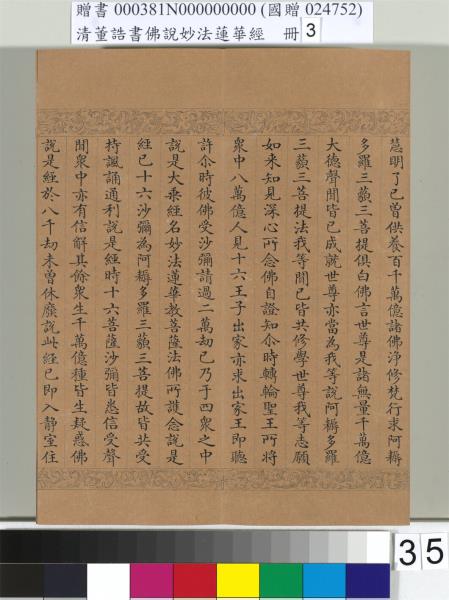 贈書 000381N000000000 (國贈 024752)
清董誥書佛說妙法蓮華經 冊 3
慧明了已曾供養百千萬億諸佛淨修梵行求阿耨
多羅三藐三菩提俱白佛言世尊是諸無量千萬億
大德聲聞皆已成就世尊亦當為我等說阿耨多羅
三藐三菩提法我等聞已皆共修學世尊我等志願
如来知見深心所念佛自證知尒時轉輪聖王所將
衆中八萬億人見十六王子出家亦求出家王即聽
許尒時彼佛受沙彌請過二萬劫已乃于四衆之中
說是大乘經名妙法蓮華教菩薩法佛所護念說是
經已十六沙彌為阿耨多羅三藐三菩提故皆共受
持諷誦通利說是經時十六菩薩沙彌皆悉信受聲
聞衆中亦有信解其餘衆生千萬億種皆生疑惑佛
說是經於八千劫未曾休廢說此經已即入靜室住
35